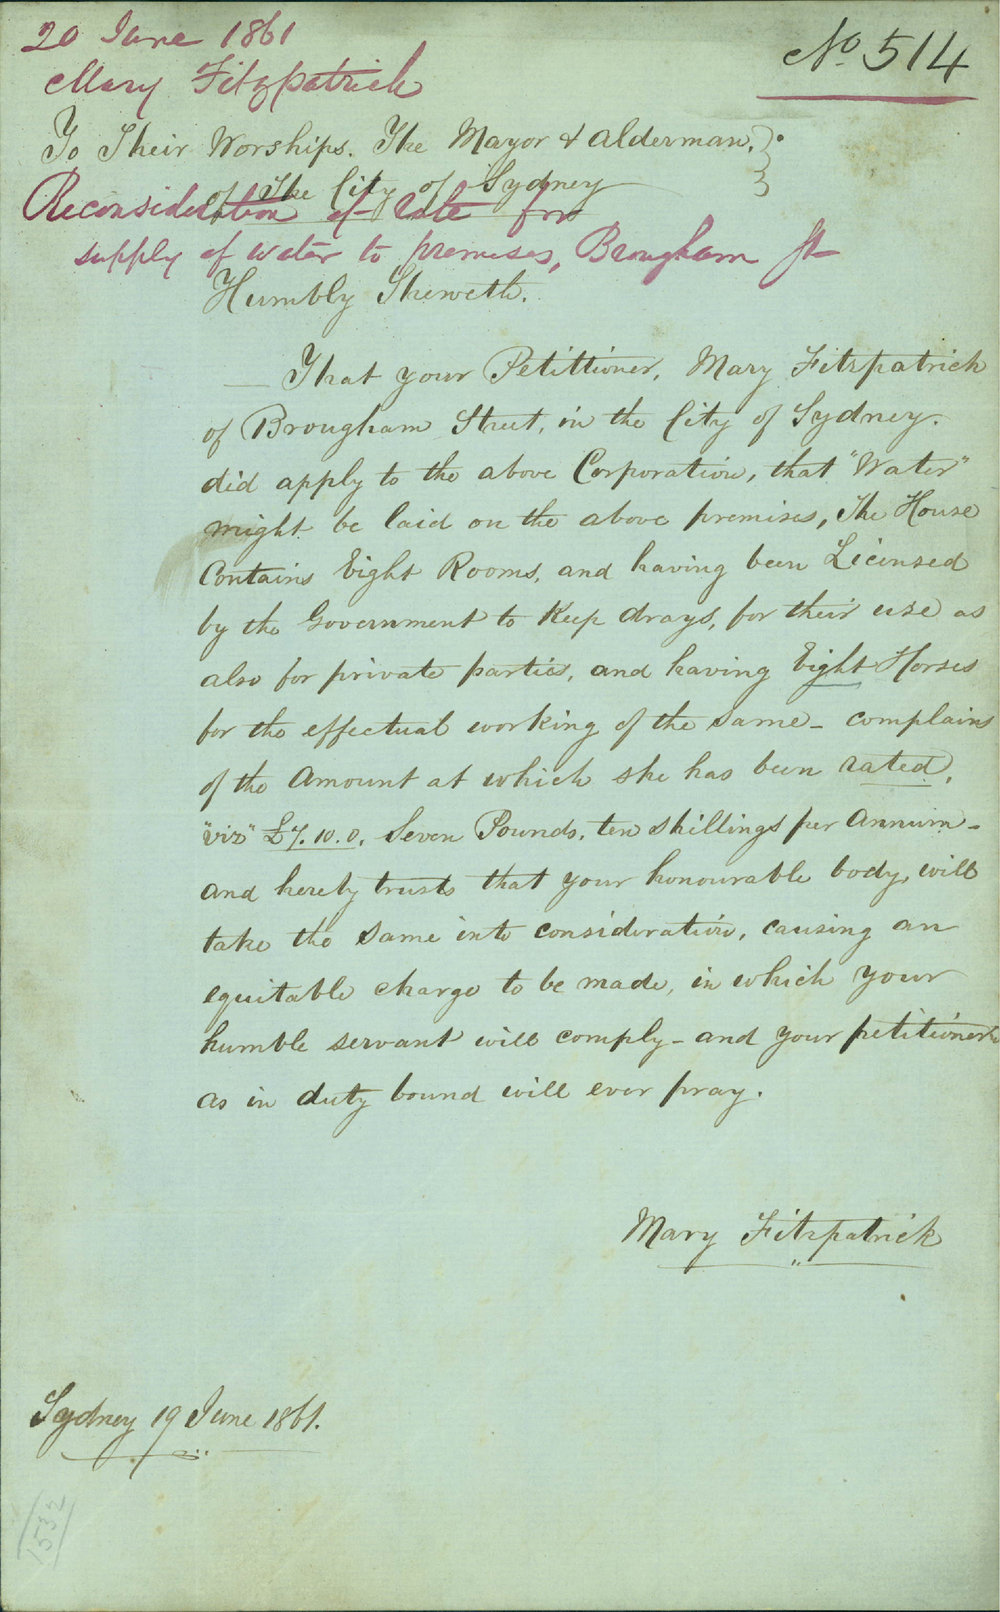 20 June 1861
No. 514
Mary Fitzpatrick
To Their Worships. The Mayor & Alderman,
of The City of Sydney
Reconsideration of rate for
supply of water to premises, Brougham St
Humbly Sheweth.
— That your Petittioner, Mary Fitzpatrick
of Brougham Street, in the City of Sydney.
did apply to the above Corporation, that "Water"
might be laid on the above premises, The House
Contains Eight Rooms, and having been Licensed
by the Government to Keep drays, for their use as
also for private parties, and having Eight Horses
for the effectual working of the same - complains
of the Amount at which she has been rated,
"viz" £7.10.0. Seven Pounds, ten shillings per Annum -
and hereby trusts that your honourable body, will
take the same into consideration, causing an
equitable charge to be made, in which your
humble servant will comply - and your petitioner
as in duty bound will ever pray.
Mary Fitzpatrick
Sydney 19 June 1861.
1532